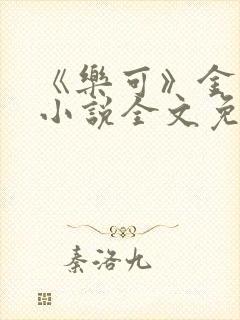 《樂可》金
小說全文免
秦洛九